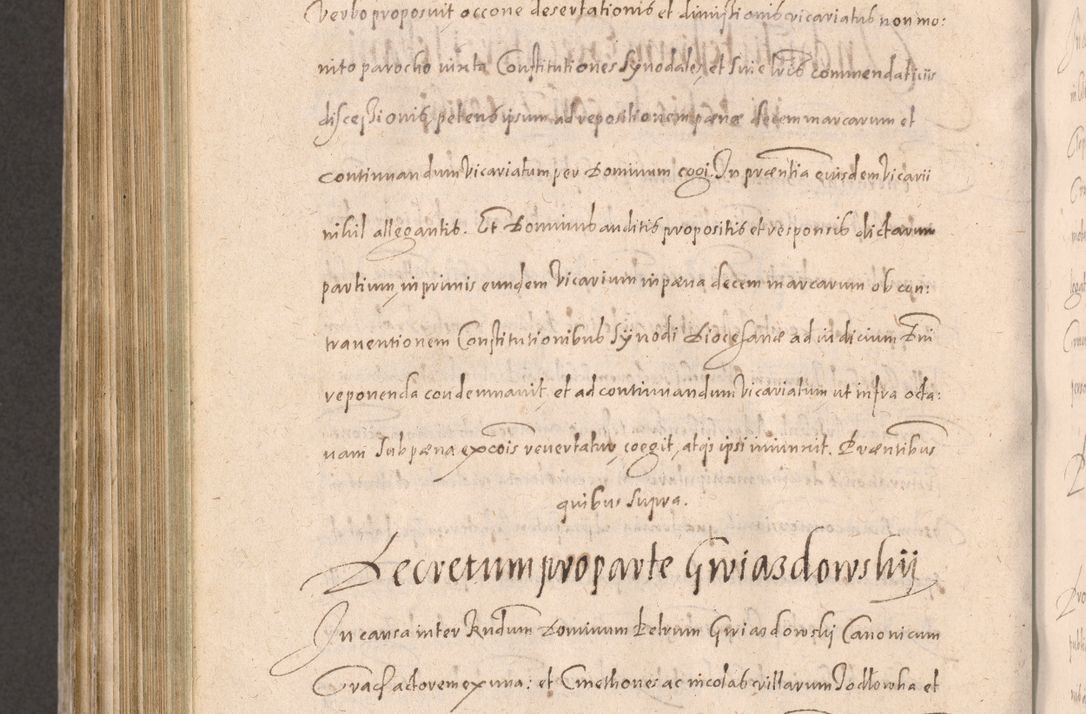 Verbo proposuit occõne desertationis et dimistionis vicariatus non mo:
nito parocho iuxta Constitutiones Synodales et sine lrīs commendatitiis
discessionis petens ipsum ad repositionem pænæ decem marcarum et
continuandum Vicariatum per Dominum cogi. In præntia eiusdem Vicarii
nihil allegantis. Et Dominus auditis propositis et responsis dictarum
partium, in primis eundem Vicarium in pæna decem marcarum ob con:
traventionem Constitutionibus Synodi Diocesanæ ad iudicium Dnī
reponenda condemnavit, et ad continuandum Vicariatum ut infra octa:
vam sub pæna excõis revertatur, coegit, atqs ipsi iniunxit. Præntibus
quibus supra.
Decretum pro parte Gwiazdowskij
In causa inter Rndum Dominum Petrum Gwiazdowskij Canonicum
Crac͠ actorem ex una: et Cmethones ac incolas villarum Jodlowka et